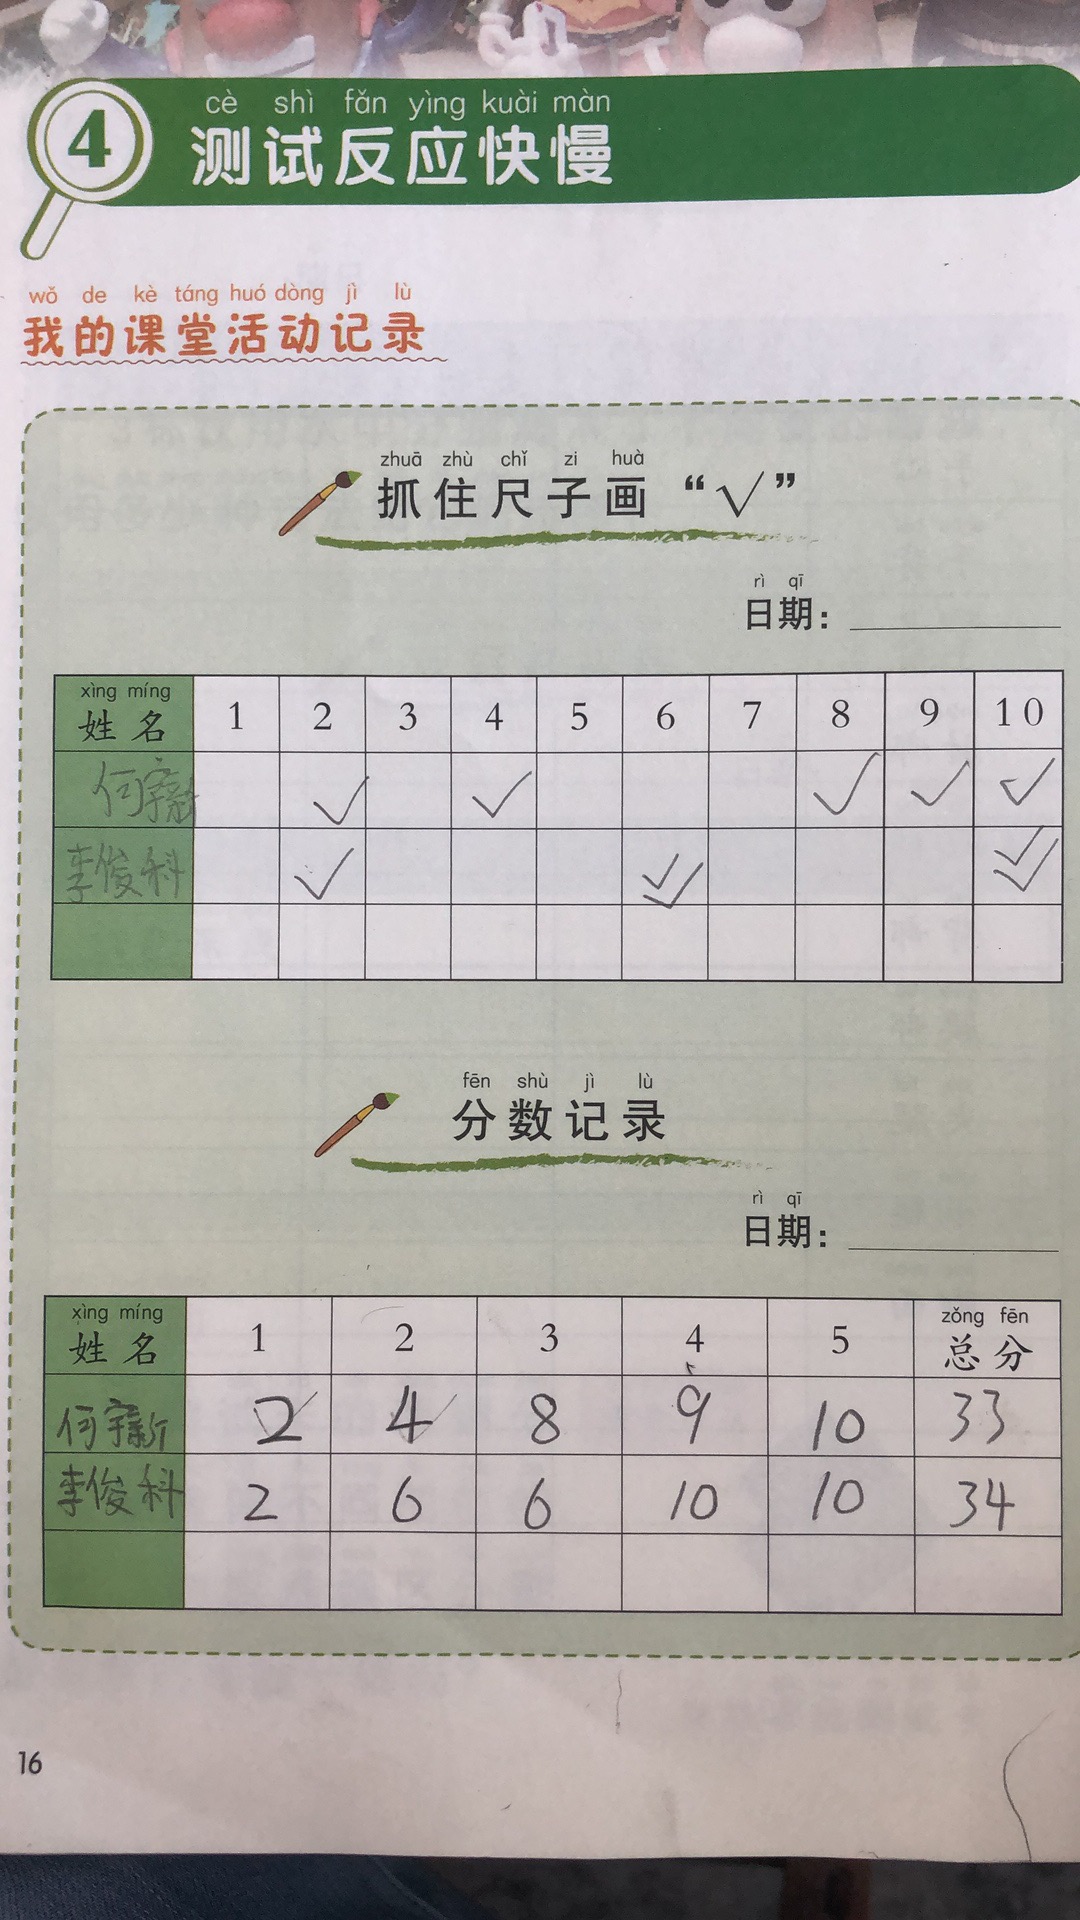 4
cè shì fǎn yìng kuài màn
测试反应快慢
wǒ de kè táng huó dòng jì lù
我的课堂活动记录
zhuā zhù chǐ zi huà
抓住尺子画“√”
rì qī
日期：
xìng míng
姓名 1 2 3 4 5 6 7 8 9 10
何宇新 √ √ √ √ √
李俊科 √ √ √ √ √
fēn shù jì lù
分数记录
rì qī
日期：
xìng míng zǒng fēn
姓名 1 2 3 4 5 总分
何宇新 2 4 8 9 10 33
李俊科 2 6 6 10 10 34
16